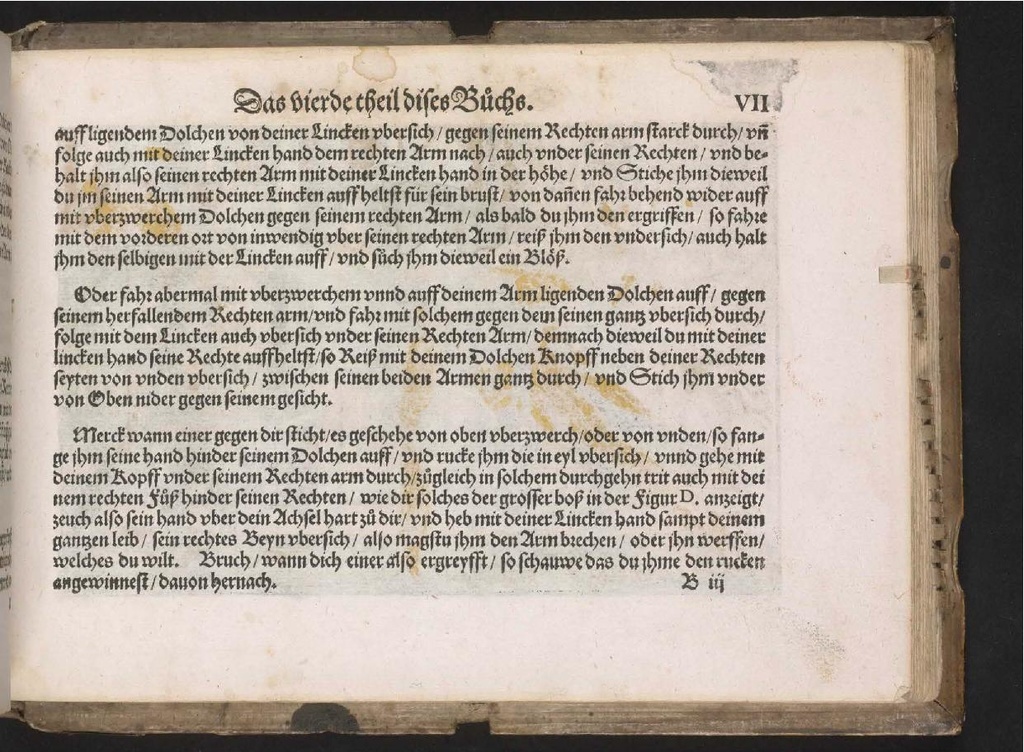 Das vierde theil dises Bůchs. VII
auff ligendem Dolchen von deiner Lincken vbersich / gegen seinem Rechten arm starck durch / vñ
folge auch mit deiner Lincken hand dem rechten Arm nach / auch vnder seinen Rechten / vnd be-
halt jhm also seinen rechten Arm mit deiner Lincken hand in der höhe / vnd Stiche jhm dieweil
du jm seinen Arm mit deiner Lincken auff heltst für sein brust / von dañen fahr behend wider auff
mit vberzwerchem Dolchen gegen seinem rechten Arm / als bald du jhm den ergriffen / so fahre
mit dem vorderen ort von inwendig vber seinen rechten Arm / reiß jhm den vndersich / auch halt
jhm den selbigen mit der Lincken auff / vnd sůch jhm dieweil ein Blöß.
Oder fahr abermal mit vberzwerchem vnnd auff deinem Arm ligenden Dolchen auff / gegen
seinem herfallendem Rechten arm / vnd fahr mit solchem gegen dem seinen gantz vbersich durch /
folge mit dem Lincken auch vbersich vnder seinen Rechten Arm / demnach dieweil du mit deiner
lincken hand seine Rechte auffheltst / so Reiß mit deinem Dolchen Knopff neben deiner Rechten
seyten von vnden vbersich / zwischen seinen beiden Armen gantz durch / vnd Stich jhm vnder
von Oben nider gegen seinem gesicht.
Merck wann einer gegen dir sticht / es geschehe von oben vberzwerch / oder von vnden / so fan-
ge jhm seine hand hinder seinem Dolchen auff / vnd rucke jhm die in eyl vbersich / vnnd gehe mit
deinem Kopff vnder seinem Rechten arm durch / zůgleich in solchem durchgehn trit auch mit dei
nem rechten Fůß hinder seinen Rechten / wie dir solches der grosser boß in der Figur D. anzeigt /
zeuch also sein hand vber dein Achsel hart zů dir / vnd heb mit deiner Lincken hand sampt deinem
gantzen leib / sein rechtes Beyn vbersich / also magstu jhm den Arm brechen / oder jhn werffen /
welches du wilt. Bruch / wann dich einer also ergreyfft / so schauwe das du jhme den rucken
angewinnest / dauon hernach. B iij